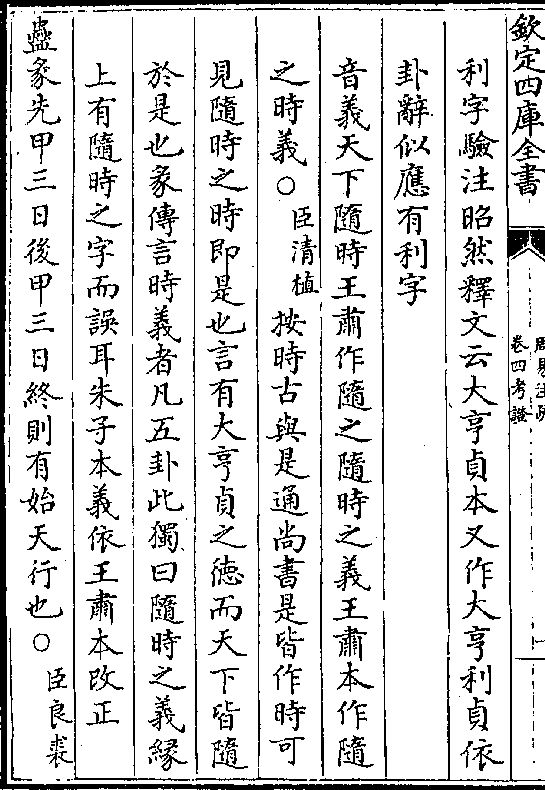 欽定四庫全書
周易注疏
卷四考證
利字驗注昭然釋文云大亨貞本又作大亨利貞依
卦辭似應有利字
音義天下隨時王肅作隨之隨時之義王肅本作隨
之時義○臣清植按時古與是通尚書是皆作時可
見隨時之時即是也言有大亨貞之德而天下皆隨
於是也彖傳言時義者凡五卦此獨曰隨時之義緣
上有隨時之字而誤耳朱子本義依王肅本改正
蠱彖先甲三日後甲三日終則有始天行也○臣良裘